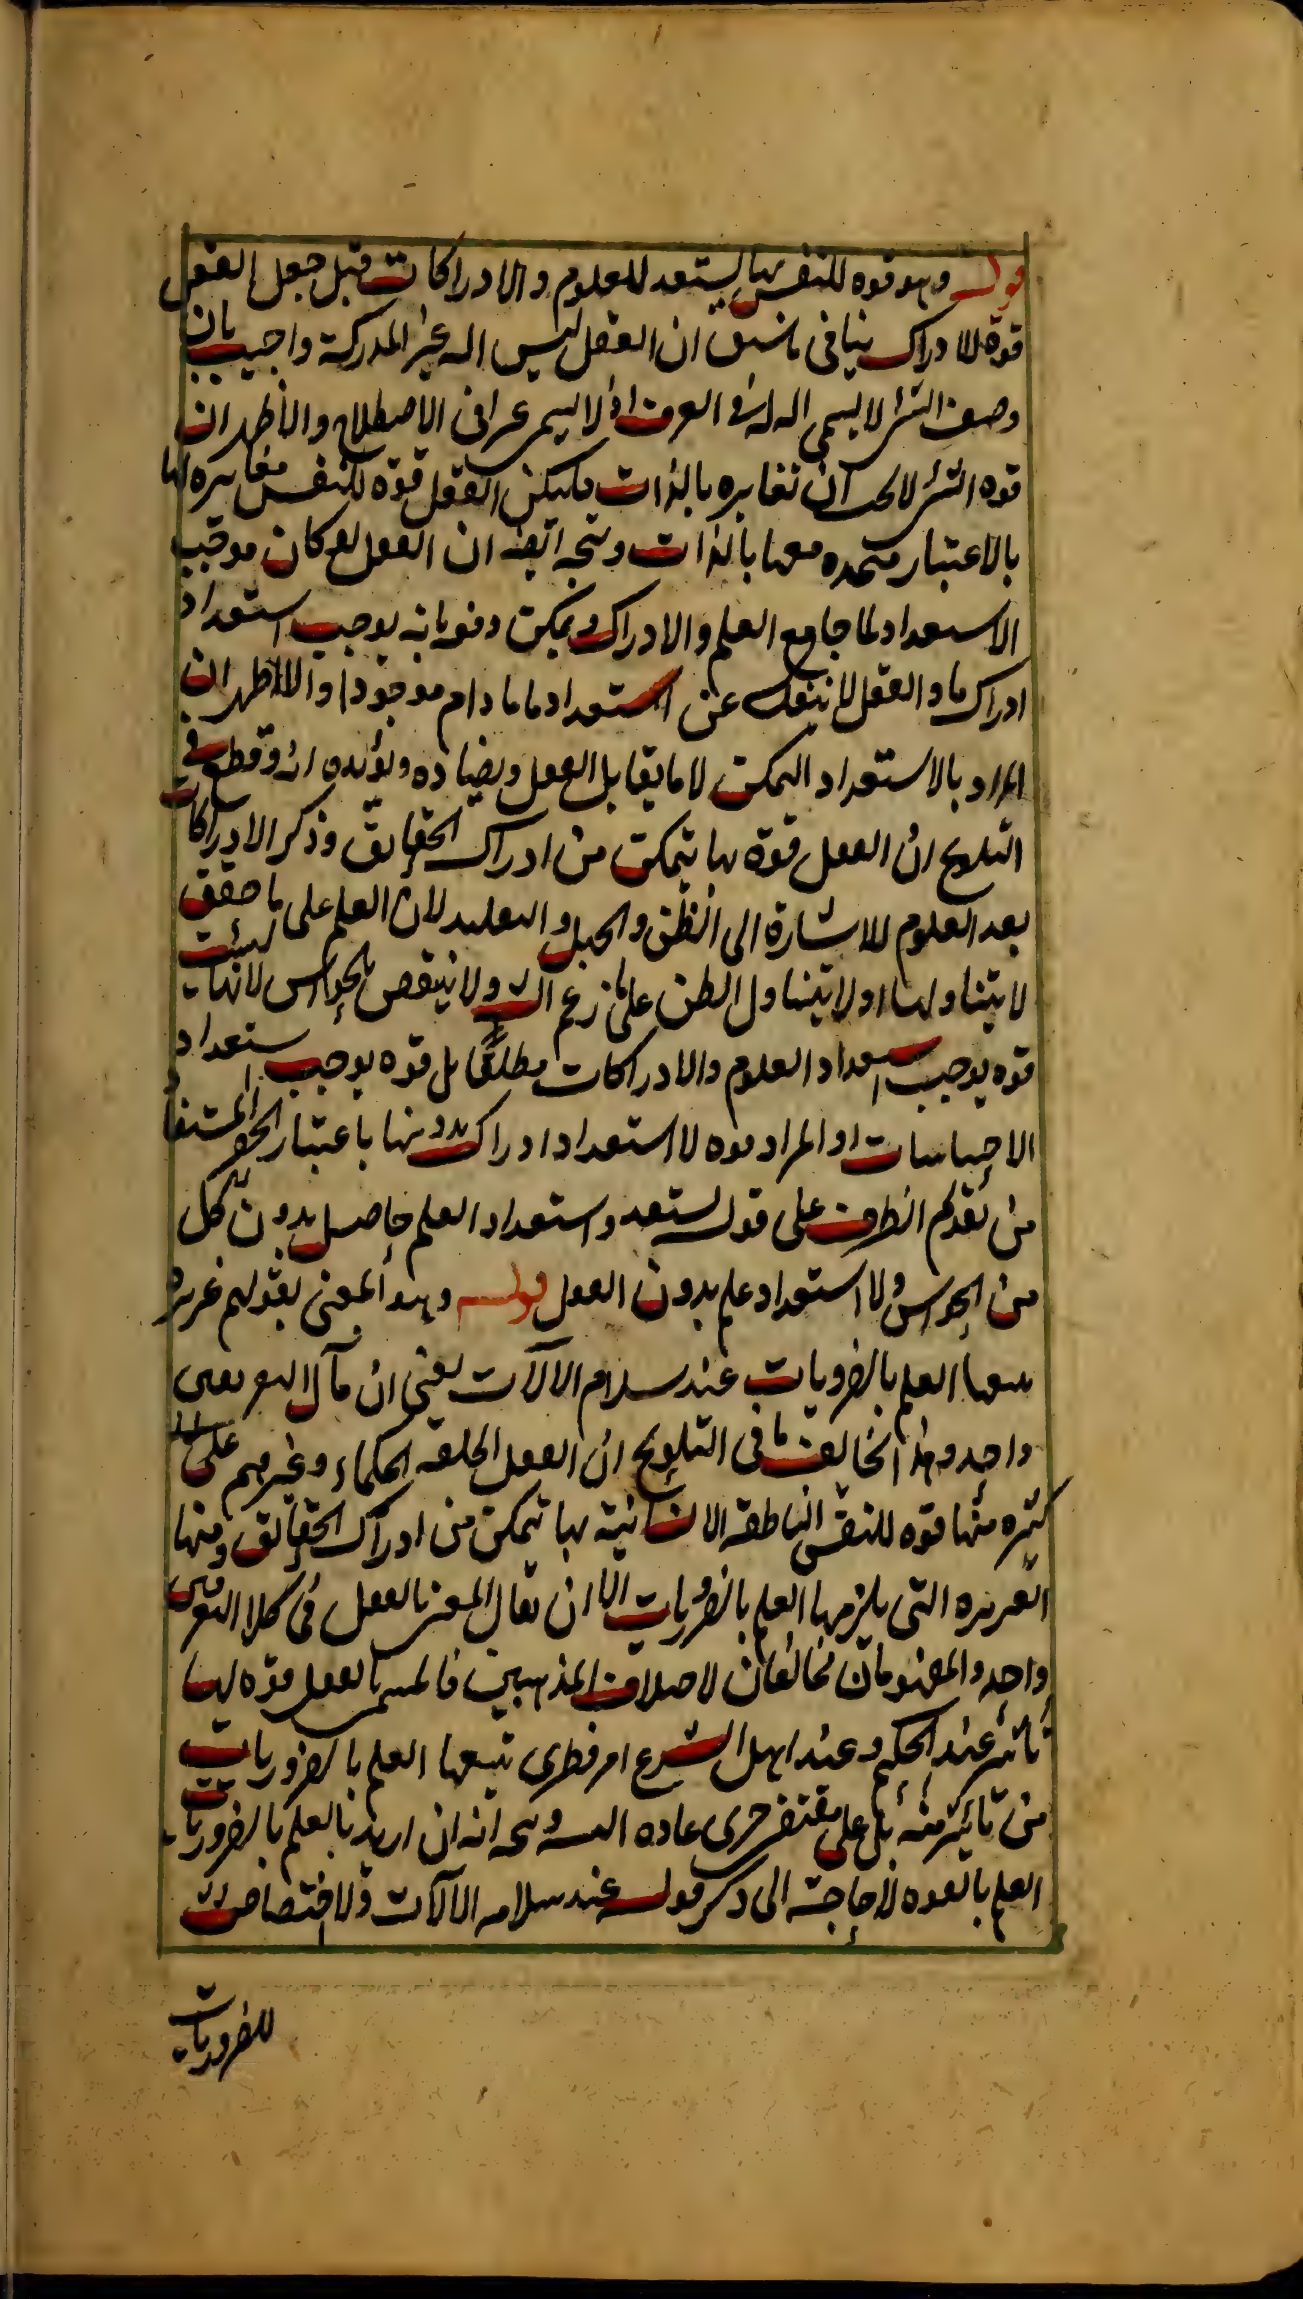 قوله وهو قوة للنفس بها يستعد للعلوم والادراكات قيل جعل العقل
قوة للادراك ينافى ما سبق ان العقل ليس اله غير المدركة واجيب بان
وصف الشئ لا يسمى اله له فى العرف اذ لا يسمى عرفا فى الاصطلاح والاظهر ان
قوه الشئ لا يجب ان تغايره بالذات فليكن العقل قوة للنفس مغايره لها
بالاعتبار متحده معها بالذات ويتجه ايضا ان العقل لو كان موجب
الاستعداد لما جامع العلم والادراك ويمكن دفعه بانه يوجب استعداد
ادراك ما والعقل لا ينفك عن استعداد ما ما دام موجودا والاظهر ان
المراد بالاستعداد التمكن لا ما يقابل الفعل ويضاده ويؤيده انه وقع فى
التلويح ان العقل قوة بها يتمكن من ادراك الحقايق وذكر الادراكات
بعد العلوم للاشارة الى الظن والجهل والتقليد لان العلم على ما حقق
لا يتناولها او لا يتناول الظن على ما زعم الش ولا ينتقض بالحواس لانها ليست
قوه يوجب استعداد العلوم والادراكات مطلقا بل قوه يوجب استعداد
الاحساسات او المراد قوه لا استعداد ادراك بدونها باعتبار الحصر المستفاد
من تقديم الظرف على قوله يستعد واستعداد العلم حاصل بدون كل
من الحواس ولا استعداد علم بدون العقل قوله وهو المعنى بقولهم غريزة
يتبعها العلم بالضروريات عند سلامة الالات يعنى ان مآل التعريفين
واحد وهذا يخالف ما فى التلويح ان العقل اطلقه الحكماء وغيرهم على معان
كثيره منها قوه للنفس الناطقه الانسانية بها يتمكن من ادراك الحقايق ومنها
الغريزه التى يلزمها العلم بالضروريات الا ان يقال المعنى بالعقل فى كلا التعريفين
واحد والمفهومان مخالفان لاختلاف المذهبين فالمسمى بالعقل قوه لها
تاثير عند الحكيم وعند اهل الشرع امر فطرى يتبعها العلم بالضروريات
من تاثير منه بل على مقتضى جرى عاده الله ويتجه انه ان اريد بالعلم بالضروريات
العلم بالقوه لا حاجة الى ذكر قوله عند سلامة الالات ولا اختصاص له
للضروريات